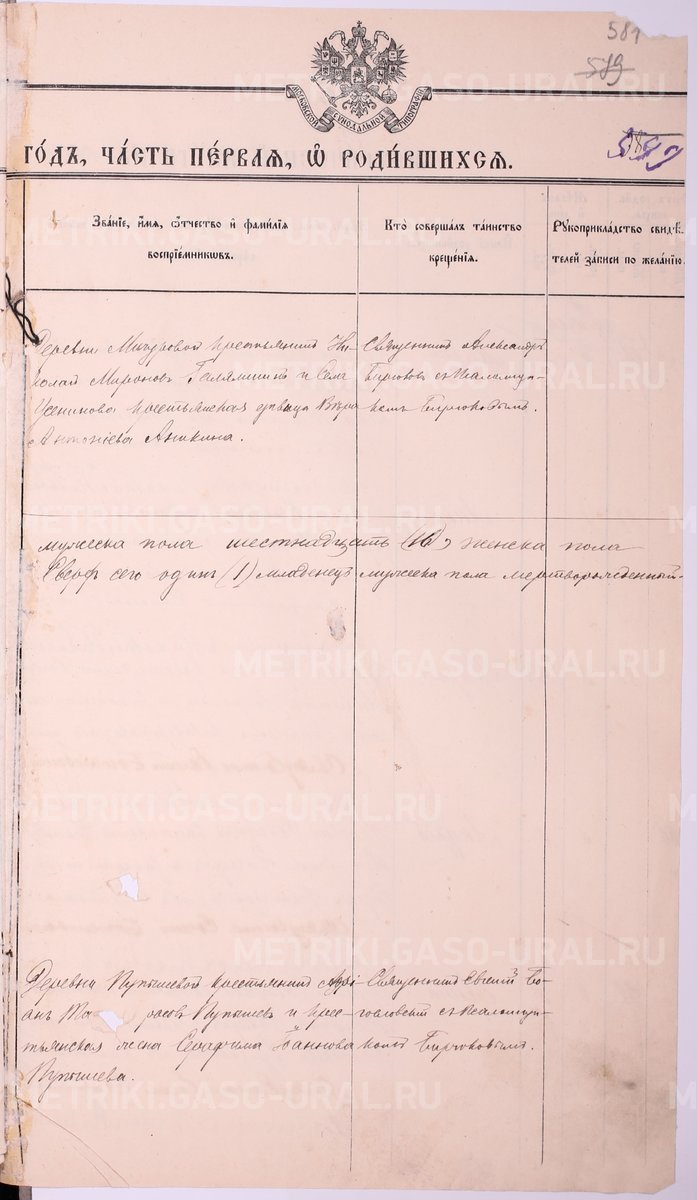 581
579
МОСКОВСКОЙ СѴНОДАЛЬНОЙ ТИПОГРАФІИ
ГО́ДЪ, ЧА́СТЬ ПЕ́РВАЯ, Ѡ҆ РОДИ́ВШИХСЯ.
Зва́нїе, и҆́мя, ѻ҆́тчество и҆ фами́лїя воспрїе́мникѡвъ.
Кто̀ соверша́лъ та́инство креще́нїя.
Рꙋкоприкла́дство свидѣ́телей за́писи по жела́нїю.
Деревни Мичуровой крестьянинъ Ни-
колай Мироновъ Галямшинъ и села
Усенинова крестьянская дѣвица Вѣра
Антоніева Аникина.
Священникъ Александръ
Бирюковъ съ псаломщи-
комъ Бирюковымъ.
мужеска пола шестнадцать (16), женска пола
Сверхъ сего одинъ (1) младенецъ мужеска пола мертворожденный.
Деревни Пупышевой крестьянинъ
Пупышевъ и крес-
тьянская жена Серафима Іоаннова
Пупышева.
Священникъ Евгеній Бо-
гословскій съ псаломщи-
комъ Бирюковымъ.
METRIKI.GASO-URAL.RU